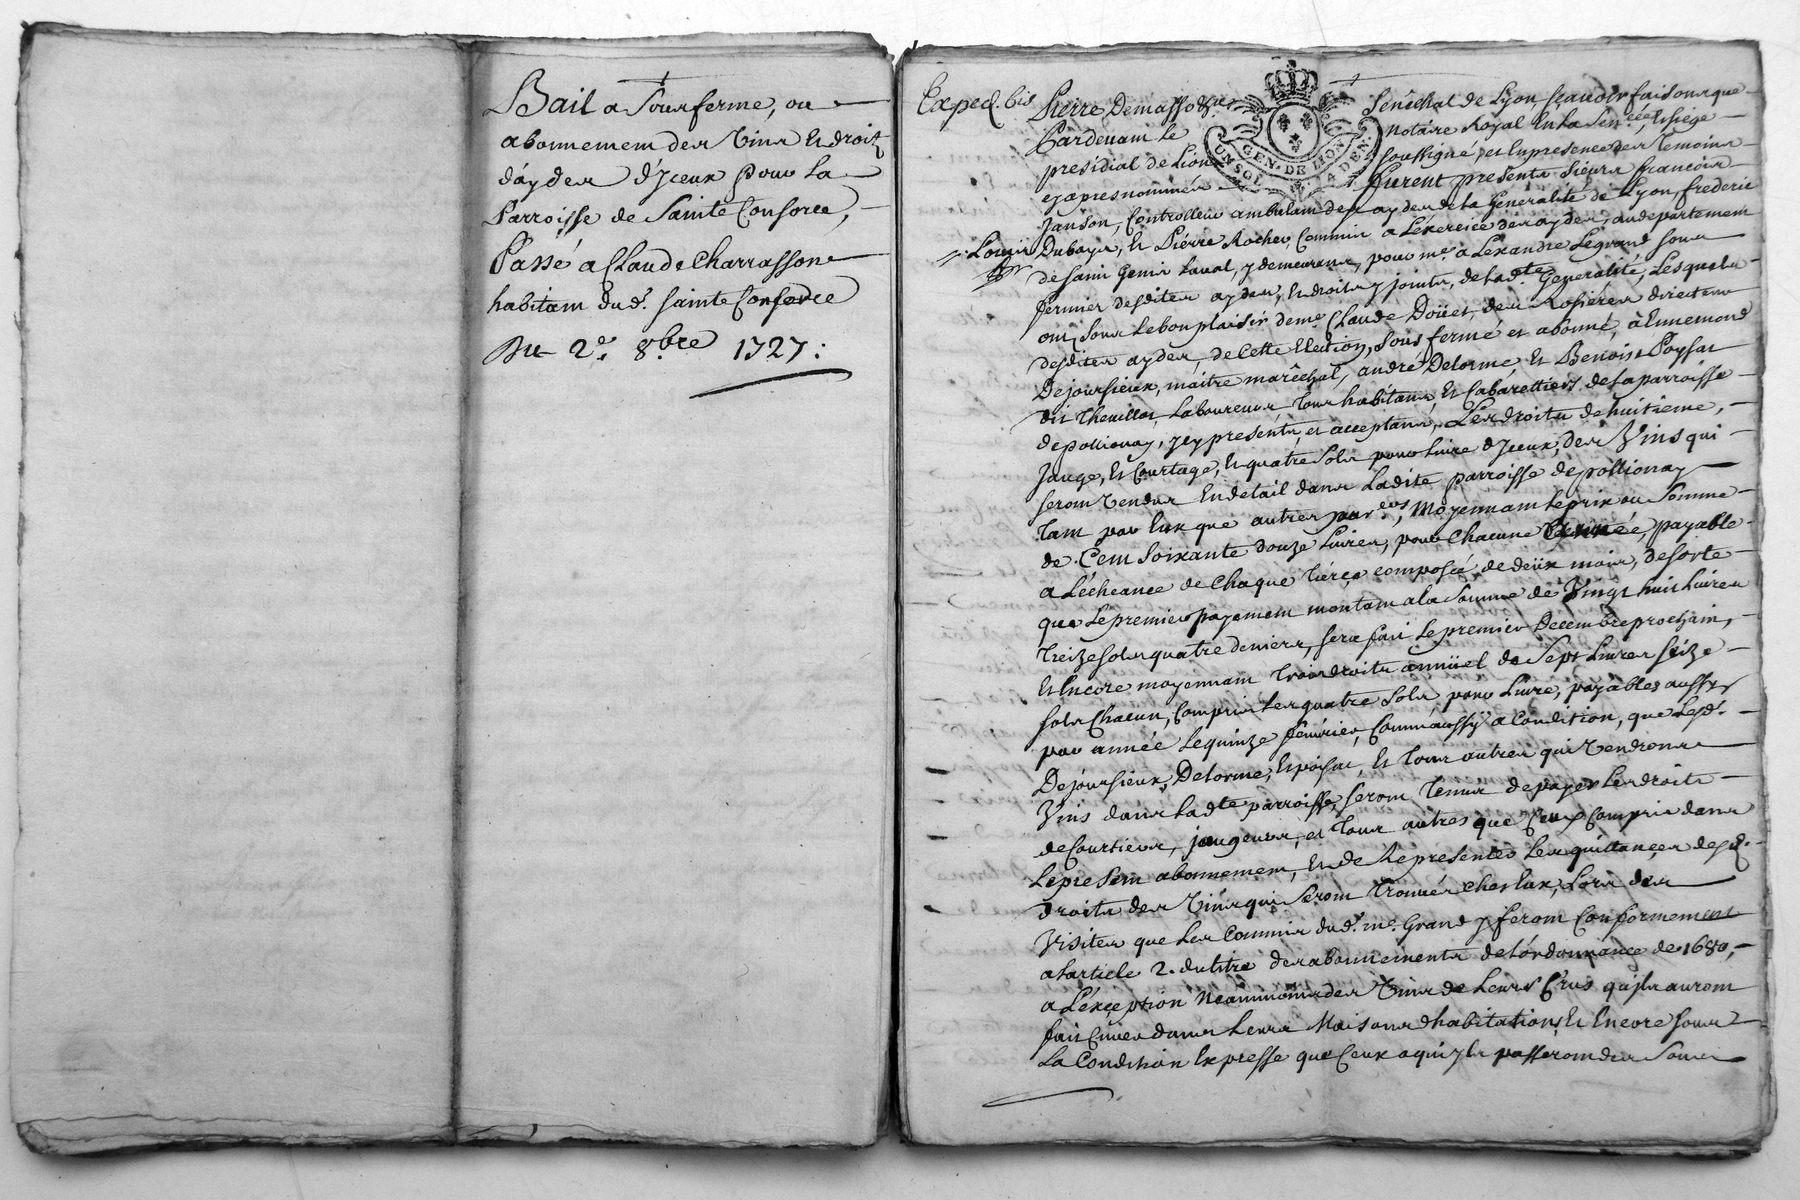 Bail a sousferme, ou
abonnement des Vins et droits
d'aydes d'Iceux pour La
Parroisse de Sainte Consorce,
Passé a Claude Charrasson
habitant dud.t sainte Consorce
Du 2.e 8.bre 1727:
Exped. bis
Pierre Demasso
Senéchal de Lyon scavoir faisons que
Pardevant Le
notaire Royal En La Sen.ceé Et siege
presidial de Lion
soussigné, et En presence des Temoins
cyapres nommés
furent presents sieurs francois
Janson, Controlleur ambulant des aydes de la Generalité de Lyon, frederic
Louis Dubays, Et Piérre Rocher, Commis a L'éxercice des aydes, au departement
de saint Genis Laval, y demeurans, pour m.e aLéxandre Legrand sous
fermier desdites aydes, Et droits y joints, de lad.te Generalité, Lesquels
ont sous Le bon plaisir de m.e Claude Doüet, des Rosiéres directeur
desdites aydes, de Cette Election, sous fermé et abonné, à Ennemond
Dejoursieux, maitre maréchal, andré Delorme, Et Benoist Poysat
dit Thevillot, Laboureurs Tous habitans, Et Cabarettiers de la parroisse
de pollionay, Icy presents, et acceptans, Les droits de huitieme,
Jauge, Et Courtage, Et quatre sols pour Livre d'Iceux, des Vins qui
seront Vendus En detail dans Ladite parroisse de pollionay
Tant par Eux que autres, Moyennant Le prix ou Somme
de Cent Soixante douze Livres, pour Chacune année, payable
a L'écheance de Chaque Tiérce composée de deux mois, de sorte
que Le premier payement montant a la Somme de Vingt huit Livres
treize sols quatre deniers, sera fait Le premier Decembre prochain,
Et Encore moyennant Trois droits annüel de Sept Livres séize
sols Chacun, Compris Les quatre sols pour Livre, payables aussy
par année Le quinze fevrier, Comme aussÿ a Condition, que Lesd.
Dejoursieux, Delorme, Et poisat, Et Tous autres qui Vendrons
Vins dans Lad.te parroisse, seront Tenus de payer Les droits
de Courtiers, jaugeurs, et Tous autres que Ceux Compris dans
Le present abonnement, Et de Representer Les quittances desd.
droits des Vins qui seront Trouvés chés Eux, Lors des
Visites que Les Commis dud. m.e Grand y feront Conformement
a L'article 2. du titre des abonnements de L'ordonnance de 1680,
a L'éxception Néanmoins des Vins de Leurs Crus qu'ils auront
fait Cuver dans Leurs Maisons d'habitations, Et Encore sous
La Condition Expresse que Ceux a qui Ils passeront des Sous
GEN. DE LION